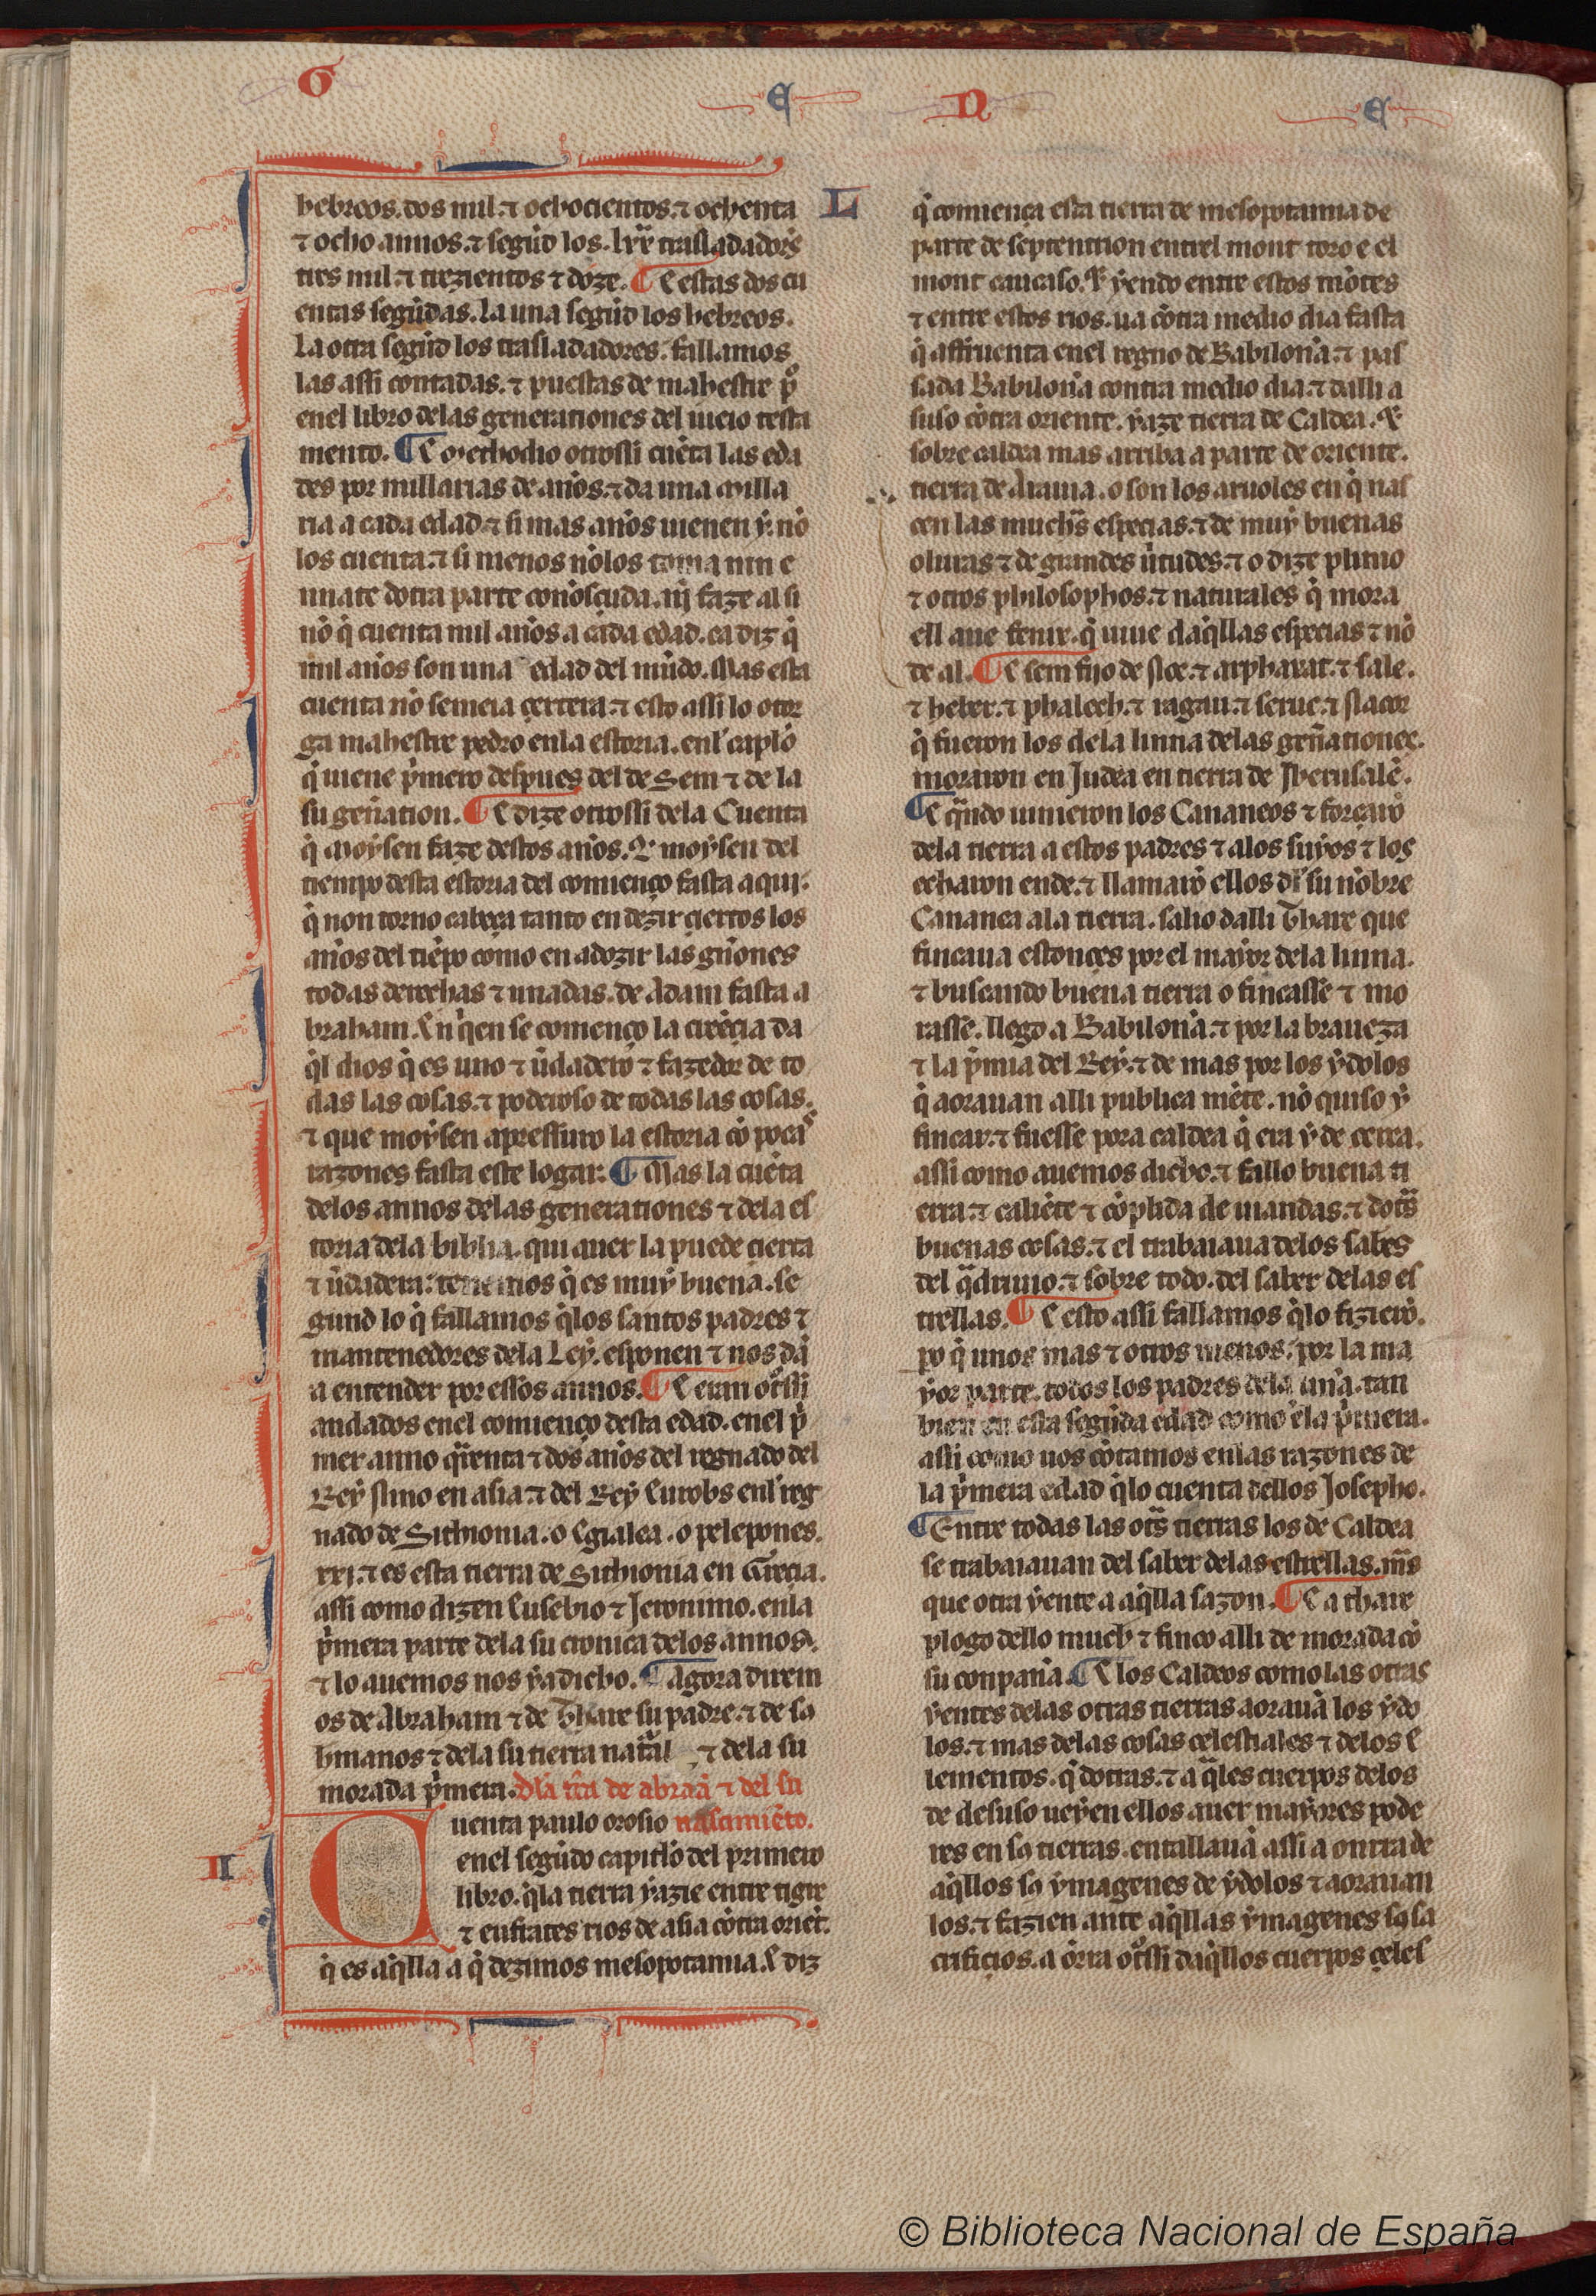 G E N E
hebreos. dos mil. ⁊ ochocientos. ⁊ ochenta
⁊ ocho annos. ⁊ segũd los. lxx̃ trasladadores
tres mil. ⁊ trezientos ⁊ doze. ¶ E estas dos cu
entas segũdas. La una segũd los hebreos.
La otra segũd los trasladadores. fallamos
las assi contadas. ⁊ puestas de mahestre p̊
enel libro delas generationes del uieio testa
mento. ¶ E Methodio otrossi cuẽta las eda
des por millarias de anõs. ⁊ da una milla
ria a cada edad ⁊ si mas anõs uienen ý. nõ
los cuenta. ⁊ si menos nõ los toma nin e
nnate dotra parte conosçuda. nĩ faze al si
nõ q̃ cuenta mil anõs a cada edad. ca diz q̃
mil anõs son una edad del mũdo. Mas esta
cuenta nõ semeia çertera. ⁊ esto assi lo otor
ga mahestre pedro en la estoria. enl capl̃o
q̃ uiene p̃mero despues del de Sem ⁊ de la
su gen̄ation. ¶ E dize otrossi dela Cuenta
q̃ Moysen faze destos anõs. Q̃ moysen del
tiempo desta estoria del comienço fasta aqui.
q̃ non torno cabeça tanto en dezir çiertos los
anõs del tiẽpo como en adozir las gn̄ones
todas derechas ⁊ unadas. de Adam fasta a
braham. En q̃en se començo la creẽcia da
q̃l dios q̃ es uno ⁊ ũdadero ⁊ fazedor de to
das las cosas. ⁊ poderoso de todas las cosas.
⁊ que moysen apressuro la estoria cõ pocas
razones fasta este logar. ¶ Mas la cuẽta
delos annos delas generationes ⁊ dela es
toria dela biblia. qui auer la puede çierta
⁊ ũdadera: tenemos q̃ es muy buena. se
gund lo q̃ fallamos q̃ los santos padres ⁊
mantenedores dela Ley. esponen ⁊ nos dã
a entender por essos annos. ¶ E eran otr̃ssi
andados enel comienço desta edad. enel p̃
mer anno q̃renta ⁊ dos anõs del regnado del
Rey Nino en asia. ⁊ del Rey Eurobs enl reg
nado de Sithionia. o Egialea. o pelepones.
xxj. ⁊ es esta tierra de Sithionia en Grecia.
assi como dizen Eusebio ⁊ Jeronimo. en la
p̃mera parte dela su cronica delos annos.
⁊ lo auemos nos ya dicho. ¶ Agora direm
os de Abraham ⁊ de Thare su padre. ⁊ de so
hmanos ⁊ dela su tierra nat̃al ⁊ dela su
morada p̃mera. Dla tr̃a de abraã ⁊ del su
Cuenta paulo orosio nasçimiẽto.
II
enel segũdo capitl̃o del primero
libro. q̃ la tierra yazie entre tigre
⁊ eufrates rios de asia cõtra oriẽt.
q̃ es aq̃lla a q̃ dezimos mesopotamia. E diz
L
q̃ comiença esta tierra de mesopotamia de
parte de septentrion entrel mont toro e el
mont caucaso. ⁊ yendo entre estos mõtes
⁊ entre estos rios. ua cõtra medio dia fasta
q̃ assruenta enel regno de Babilonia. ⁊ pas
sada Babilonia contra medio dia. ⁊ dalli a
suso cõtra oriente. yaze tierra de Caldea. ⁊
sobre caldea mas arriba a parte de oriente.
tierra de Arauia. o son los aruoles en q̃ nas
cen las muchãs espeçias. ⁊ de muy buenas
oluras ⁊ de grandes ũtudes. ⁊ o dize plinio
⁊ otros philosophos. ⁊ naturales q̃ mora
ell aue fenix. q̃ uiue daq̃llas especias ⁊ nõ
de al. ¶ E sem fijo de Noe. ⁊ arphaxat. ⁊ sale.
⁊ heber. ⁊ phalech. ⁊ ragau. ⁊ seruc. ⁊ Nacor
q̃ fueron los dela linna delas gen̄ationes.
moraron en Judea en tierra de Jherusalẽ.
¶ E q̃ndo uinieron los Cananeos ⁊ forçarõ
dela tierra a estos padres ⁊ alos suyos ⁊ los
echaron ende. ⁊ llamarõ ellos dl su nõbre
Cananea ala tierra. salio dalli Thare que
fincaua estonces por el mayor dela linna.
⁊ buscando buena tierra o fincasse ⁊ mo
rasse. llego a Babilonia. ⁊ por la braueza
⁊ la p̃mia del Rey. ⁊ de mas por los ydolos
q̃ aorauan alli publica miẽte. nõ quiso y
fincar. ⁊ fuesse pora caldea q̃ era y de cerca.
assi como auemos dicho. ⁊ fallo buena ti
erra. ⁊ caliẽte ⁊ cõplida de uiandas. ⁊ dotr̃s
buenas cosas. ⁊ el trabaiaua delos sabẽs
del q̃driuio. ⁊ sobre todo. del saber delas es
trellas. ¶ E esto assi fallamos q̃lo fizierõ.
po q̃ unos mas ⁊ otros menos. por la ma
yor parte. todos los padres dela linã. tan
bien en esta segũda edad como ẽla p̃mera.
assi como uos cõtamos en las razones de
la p̃mera edad q̃lo cuenta dellos Josepho.
¶ Entre todas las otr̃s tierras los de Caldea
se trabaiauan del saber delas estrellas. mãs
que otra yente a aq̃lla sazon. ¶ E a thare
plogo dello much ⁊ finco alli de morada cõ
su conpanã. ¶ E los Caldeos como las otras
yentes delas otras tierras aorauã los ydo
los. ⁊ mas delas cosas celestiales ⁊ delos E
lementos. q̃ dotras. ⁊ a q̃les cuerpos delos
de desuso ueyen ellos auer mayores pode
res en so tierras. entallauã assi a onrra de
aq̃llos so ymagenes de ydolos ⁊ aorauan
los. ⁊ fazien ante aq̃llas ymagenes so sa
crificios. a õrra otr̃ssi daq̃llos cuerpos çeles
© Biblioteca Nacional de España